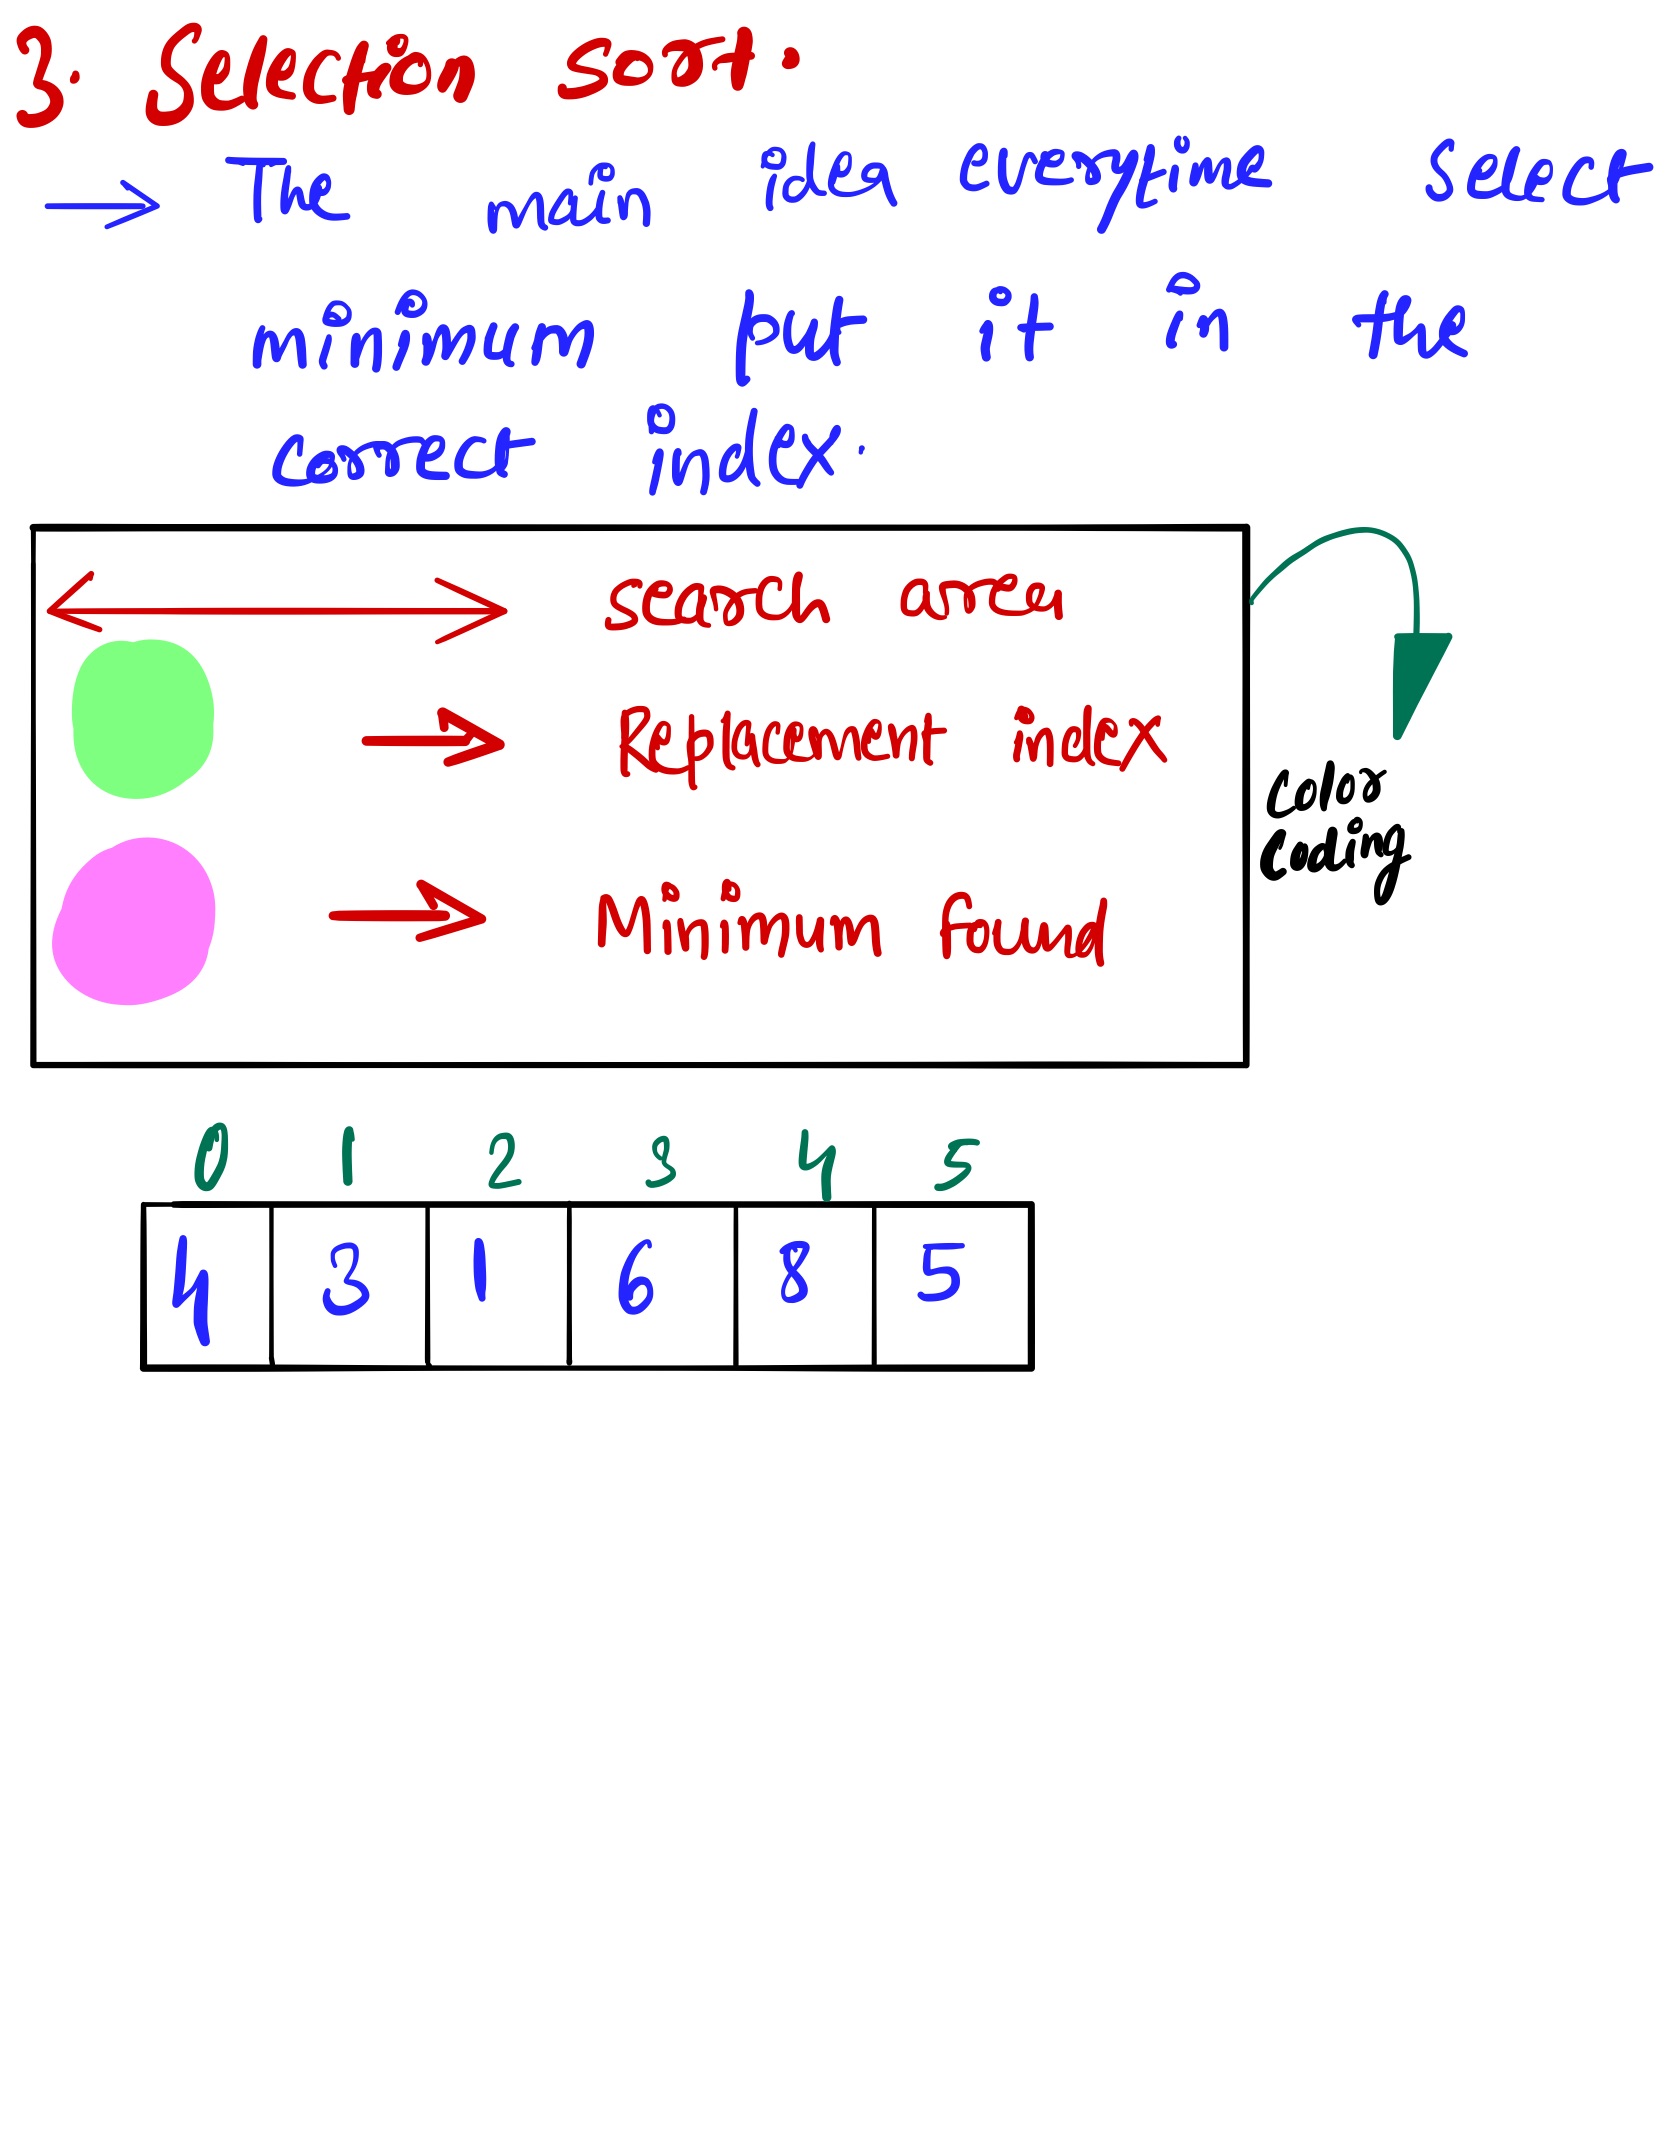 3. Selection sort.
→ The main idea everytime select
minimum put it in the
correct index.
search area
→ Replacement index
→ Minimum found
Color
Coding
0 1 2 3 4 5
4 3 1 6 8 5